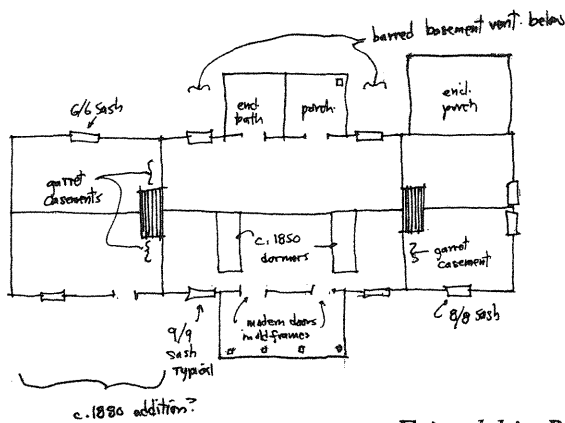 barred basement vent below
6/6 Sash
encl.
bath
porch
encl.
porch
garret
casements
c. 1850
dormers
garret
casement
9/9
sash
typical
modern doors
in old frames
8/8 sash
c. 1880 addition?